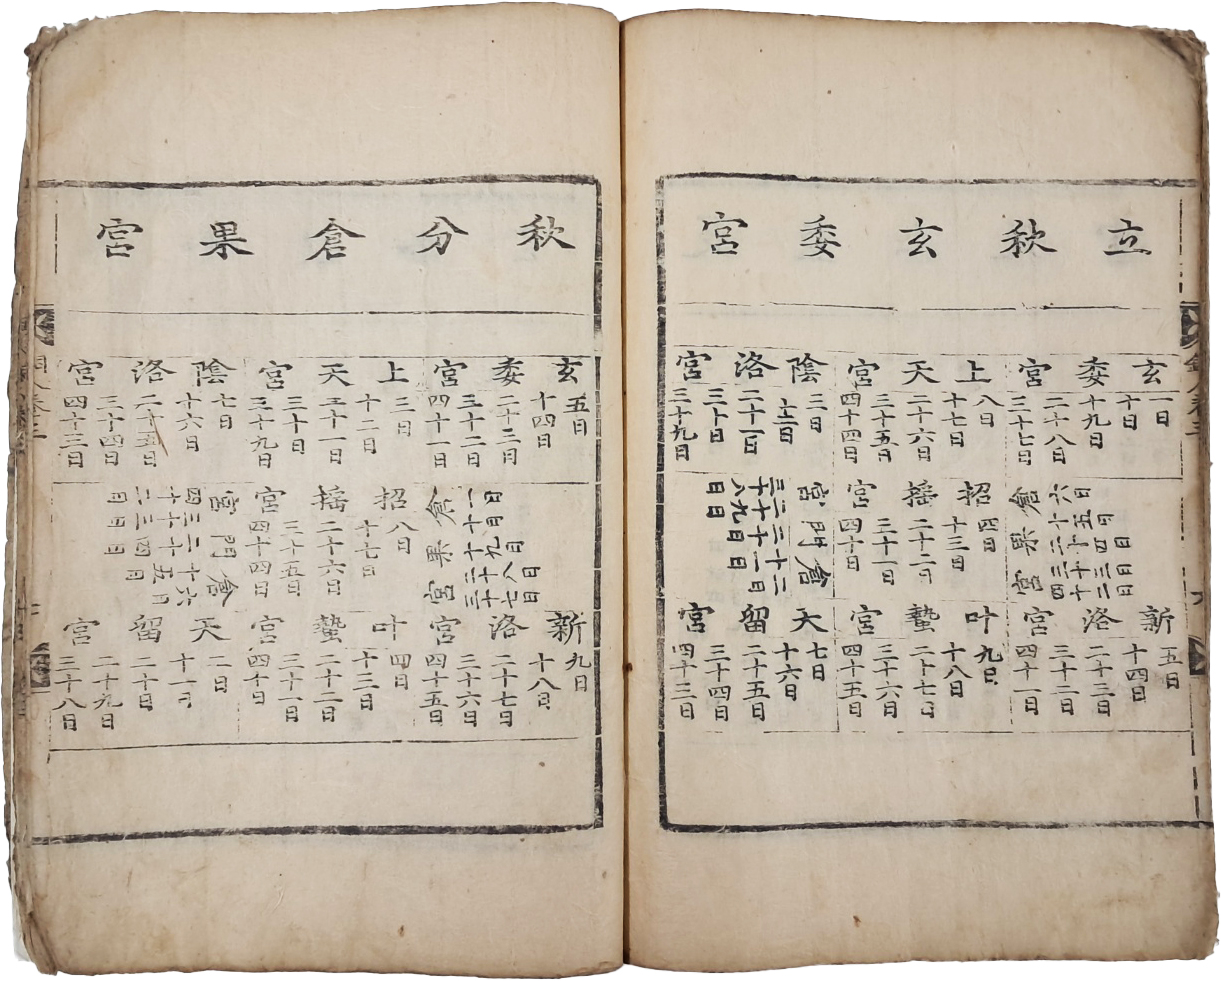 立秋玄委宮
玄委宮
一日
十日
十九日
二十八日
三十七日
上天宮
八日
十七日
二十六日
三十五日
四十四日
陰洛宮
三日
十二日
二十一日
三十日
三十九日
倉果宮
六日
十五日
二十四日
三十三日
四十二日
招摇宮
四日
十三日
二十二日
三十一日
四十日
倉門宮
二日
十一日
二十日
二十九日
三十八日
新洛宮
五日
十四日
二十三日
三十二日
四十一日
叶蟄宮
九日
十八日
二十七日
三十六日
四十五日
天留宮
七日
十六日
二十五日
三十四日
四十三日
秋分倉果宮
玄委宮
五日
十四日
二十三日
三十二日
四十一日
上天宮
三日
十二日
二十一日
三十日
三十九日
陰洛宮
七日
十六日
二十五日
三十四日
四十三日
倉果宮
一日
十日
十九日
二十八日
三十七日
招摇宮
八日
十七日
二十六日
三十五日
四十四日
倉門宮
六日
十五日
二十四日
三十三日
四十二日
新洛宮
九日
十八日
二十七日
三十六日
四十五日
叶蟄宮
四日
十三日
二十二日
三十一日
四十日
天留宮
二日
十一日
二十日
二十九日
三十八日